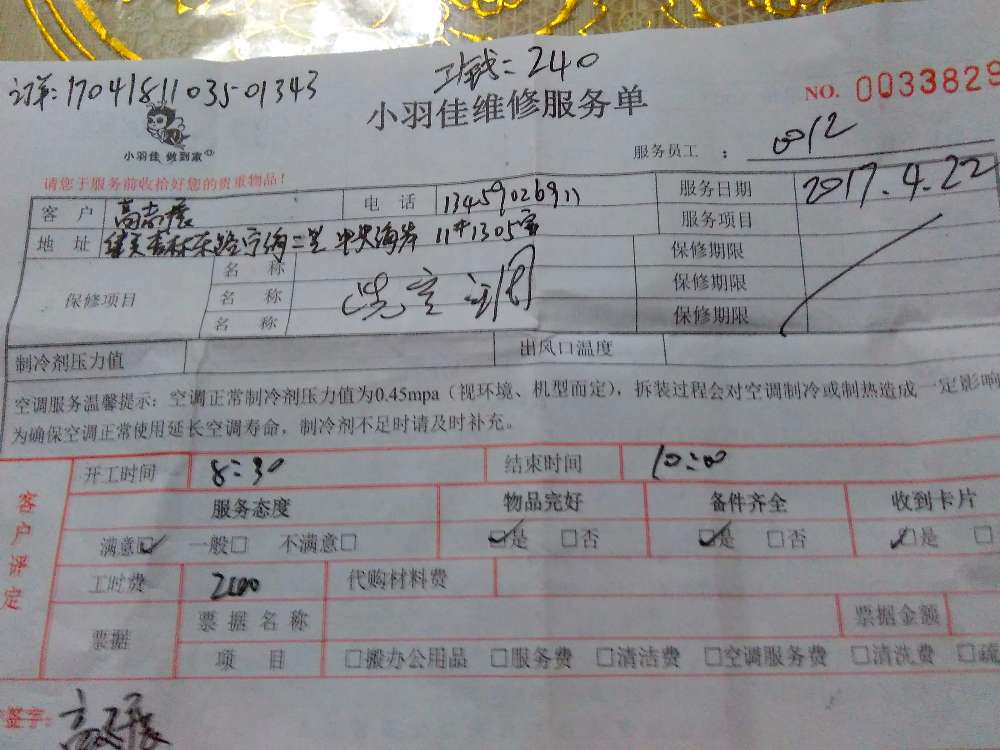 订单:17041811035-01343
工钱:240
NO. 0033829
小羽佳维修服务单
小羽佳 做到家
服务员工 : 0012
请您于服务前收拾好您的贵重物品!
客 户 高志展 电 话 13459026911 服务日期 2017.4.22
服务项目
地 址 东路宁海二里 中央海岸 11#1305室 保修期限
保修项目 名 称
名 称 洗空调 保修期限
名 称 保修期限
制冷剂压力值 出风口温度
空调服务温馨提示:空调正常制冷剂压力值为0.45mpa(视环境、机型而定),拆装过程会对空调制冷或制热造成一定影响
为确保空调正常使用延长空调寿命,制冷剂不足时请及时补充。
客户评定
开工时间 8:30 结束时间 10:00
服务态度 物品完好 备件齐全 收到卡片
满意☑ 一般□ 不满意□ ☑是 □否 ☑是 □否 ☑是 □
工时费 240 代购材料费
票据 票据名称 票据金额
项 目 □搬办公用品 □服务费 □清洁费 □空调服务费 □清洗费 □疏
签字: